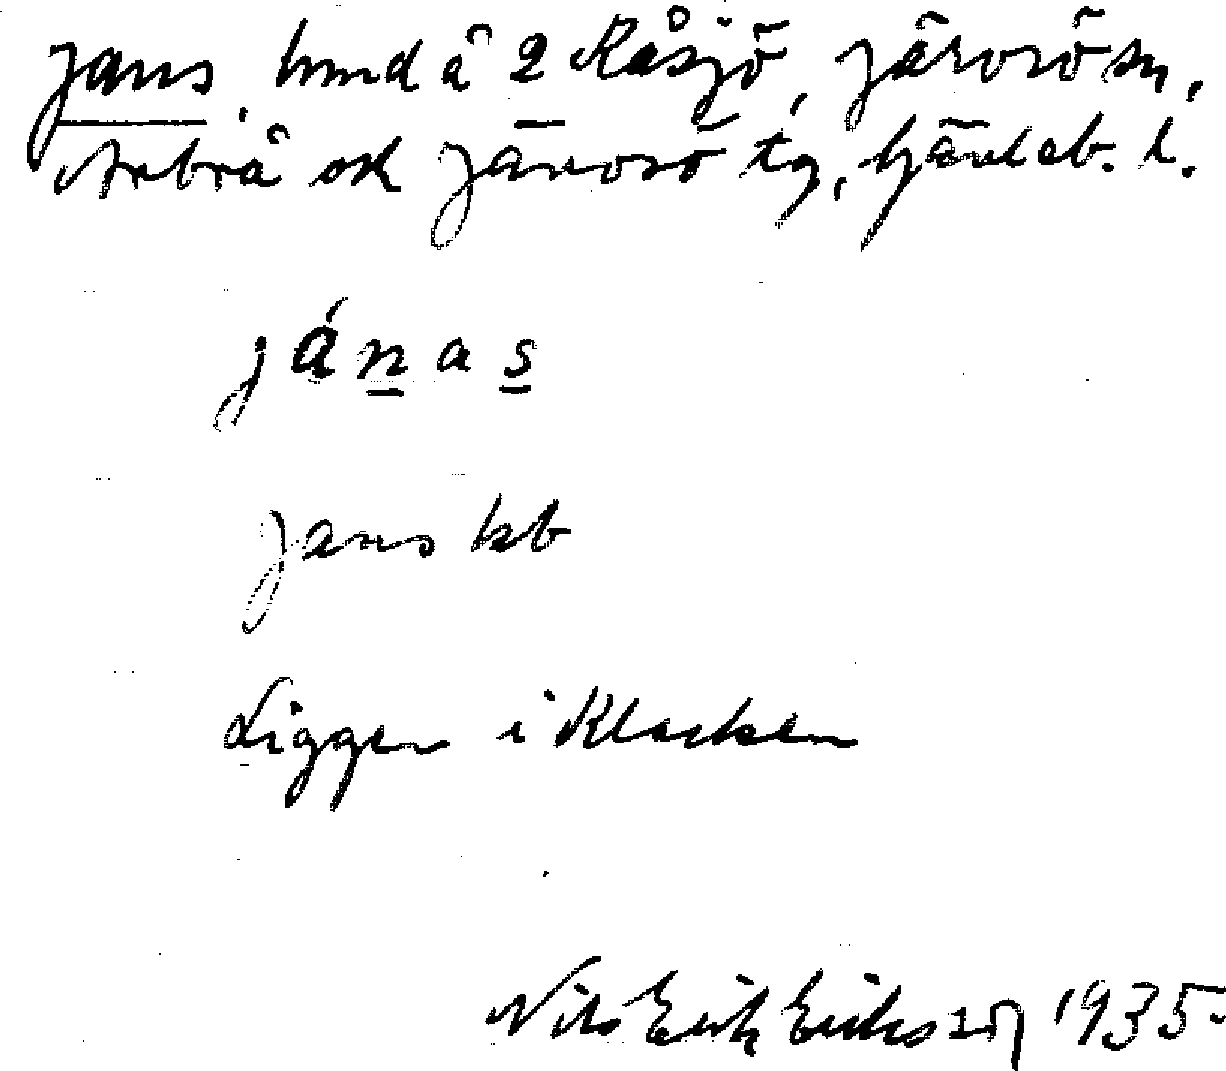 Jans, hmd å 2 Råsjö, Järvsö sn,
Arbrå ok Järvsö tg, Gävleb. l.
jánas
Jans kb
Ligger i Klacken
Nils Erik Eriksson 1935.